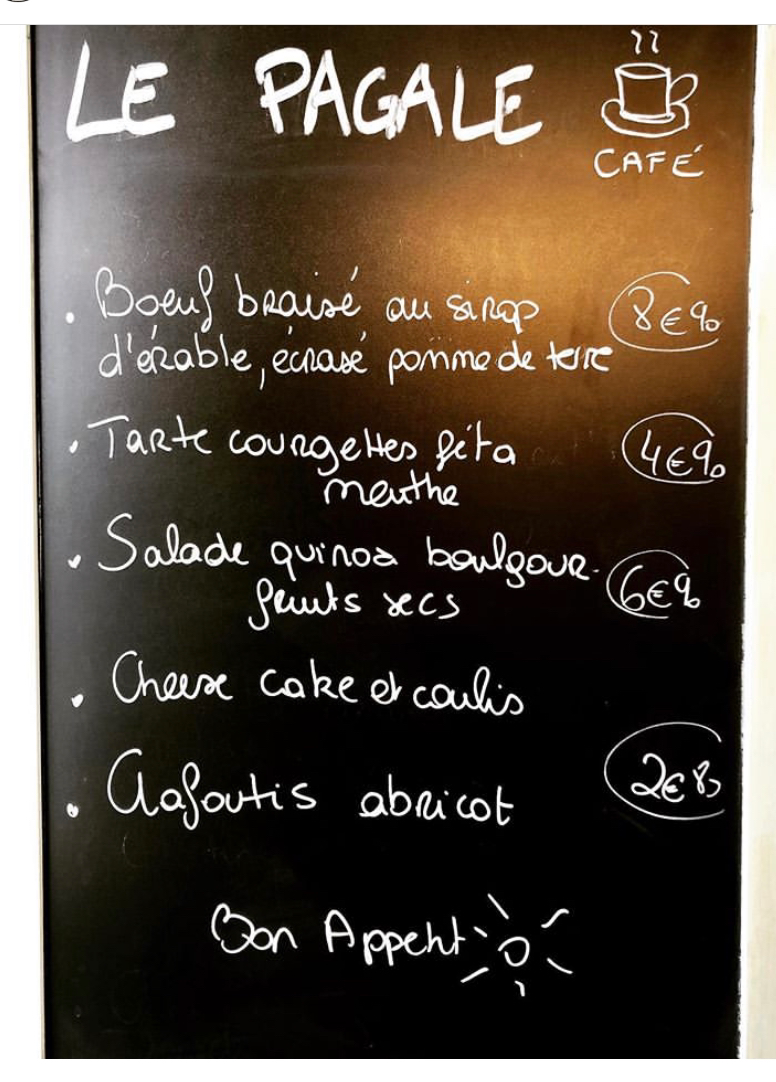 LE PAGALE
CAFÉ
. Boeuf braisé au sirop 8€90
d'érable, écrasé pomme de terre
. Tarte courgettes féta 4€90
menthe
. Salade quinoa boulgour 6€90
fruits secs
. Cheese cake et coulis
. Clafoutis abricot 2€80
Bon Appétit